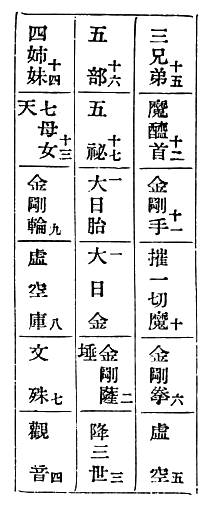 三兄弟十五
魔醯首十二
金剛手十一
摧一切魔十
金剛拳六
虛空五
五部十六
五祕十七
大日胎一
大日金一
金剛薩埵二
降三世三
四姉妹十四
七母女天十三
金剛輪九
虛空庫八
文殊七
觀音四